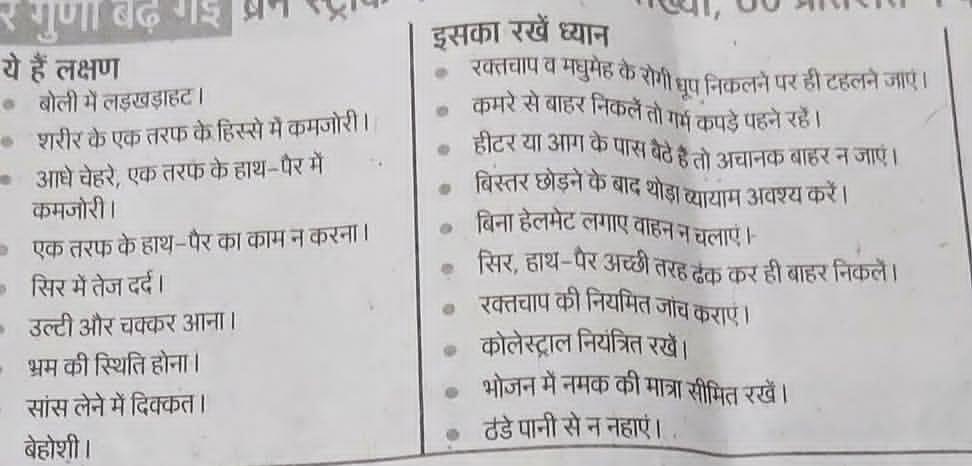 र गुणा बढ़ गई ब्रेन
ये हैं लक्षण
बोली में लड़खड़ाहट।
शरीर के एक तरफ के हिस्से में कमजोरी।
आधे चेहरे, एक तरफ के हाथ-पैर में
कमजोरी।
एक तरफ के हाथ-पैर का काम न करना।
सिर में तेज दर्द।
उल्टी और चक्कर आना।
भ्रम की स्थिति होना।
सांस लेने में दिक्कत।
बेहोशी।
इसका रखें ध्यान
रक्तचाप व मधुमेह के रोगी धूप निकलने पर ही टहलने जाएं।
कमरे से बाहर निकलें तो गर्म कपड़े पहने रहें।
हीटर या आग के पास बैठे हैं तो अचानक बाहर न जाएं।
बिस्तर छोड़ने के बाद थोड़ा व्यायाम अवश्य करें।
बिना हेलमेट लगाए वाहन न चलाएं।
सिर, हाथ-पैर अच्छी तरह ढंक कर ही बाहर निकलें।
रक्तचाप की नियमित जांच कराएं।
कोलेस्ट्राल नियंत्रित रखें।
भोजन में नमक की मात्रा सीमित रखें।
ठंडे पानी से न नहाएं।